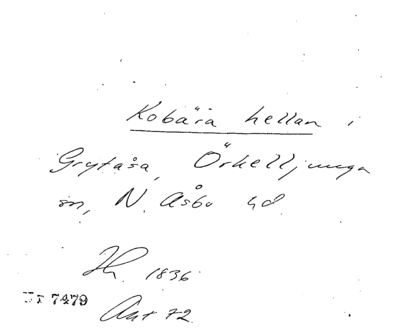 Kobära hellan i
Grytåsa, Örkelljunga
sn, N. Åsbo hd
Hr. 1836
7479
Ant 72